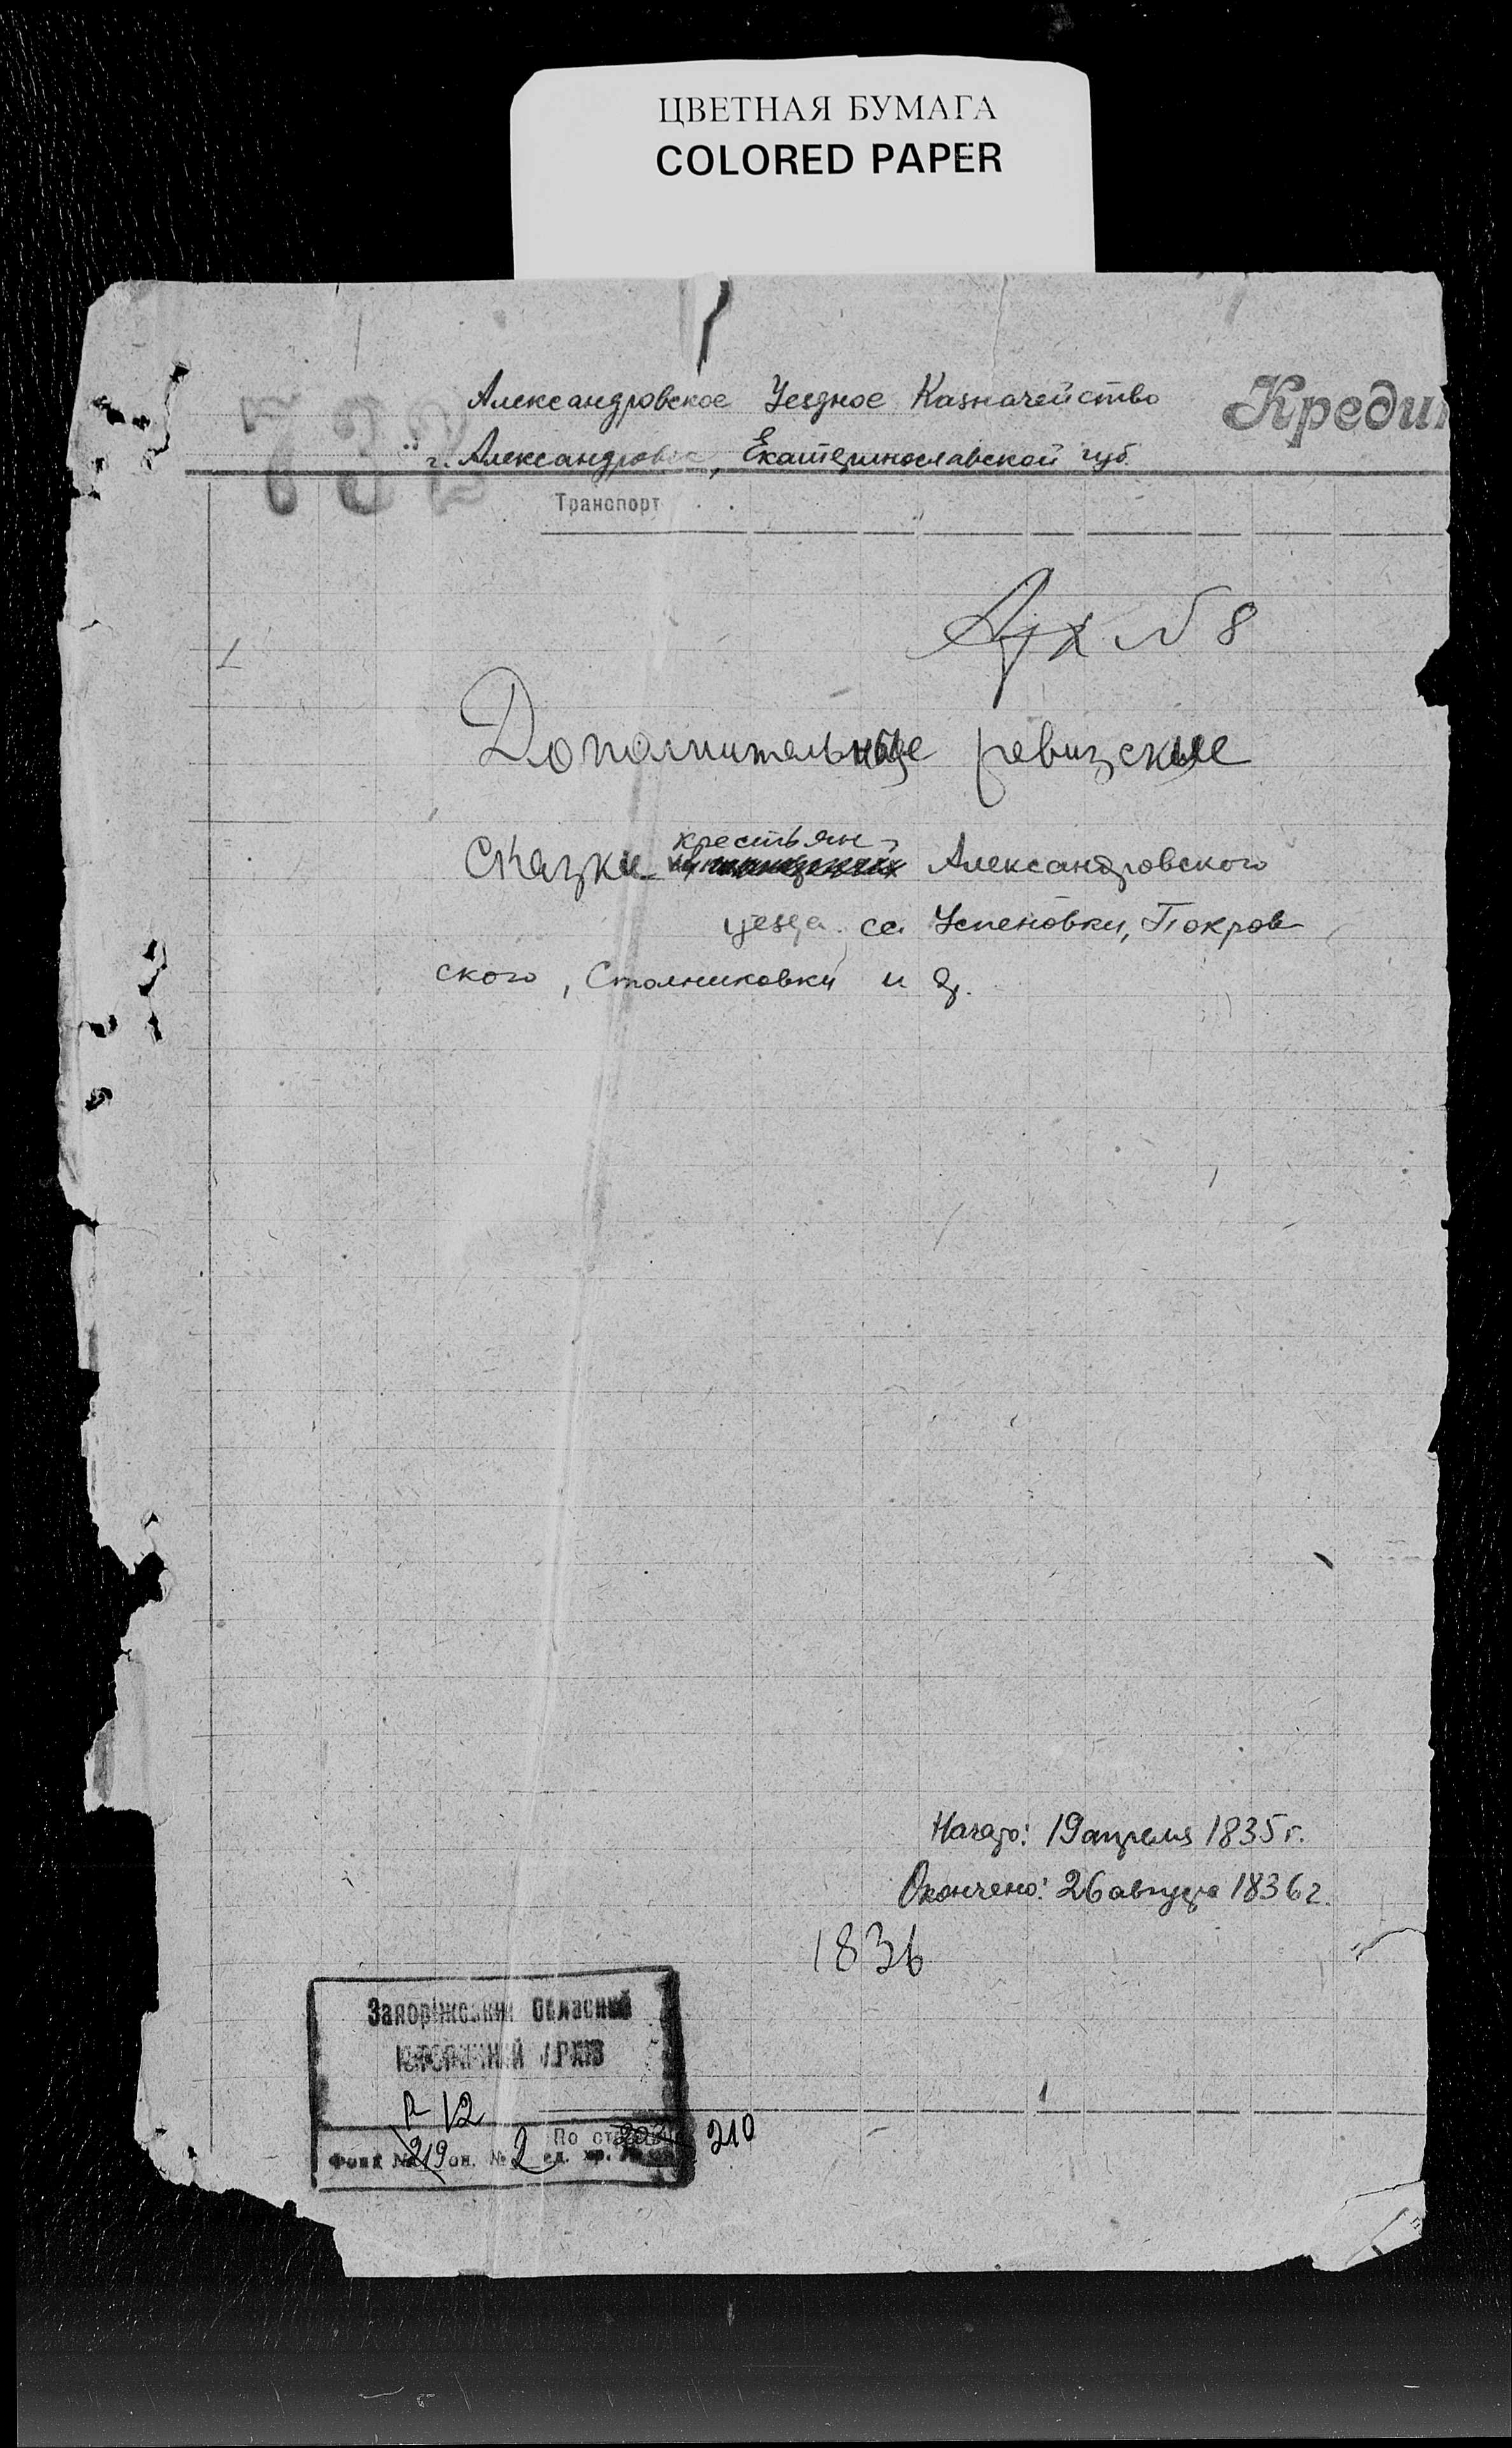 ЦВЕТНАЯ БУМАГА
COLORED PAPER
Александровское Уездное Казначейство
Кредит
г. Александровск, Екатеринославской губ.
Транспорт . .
Арх № 8
Дополнительные ревизские
крестьян
Сказки Александровского
уезда сс. Успеновки, Покров
ского, Столниковки и др.
Начато: 19 апреля 1835 г.
Окончено: 26 августа 1836 г.
1836
Запоріжський Обласний
ІСТОРИЧНИЙ АРХІВ
12
По ст
Фонд № 219 оп. № 2 ед. хр. 210